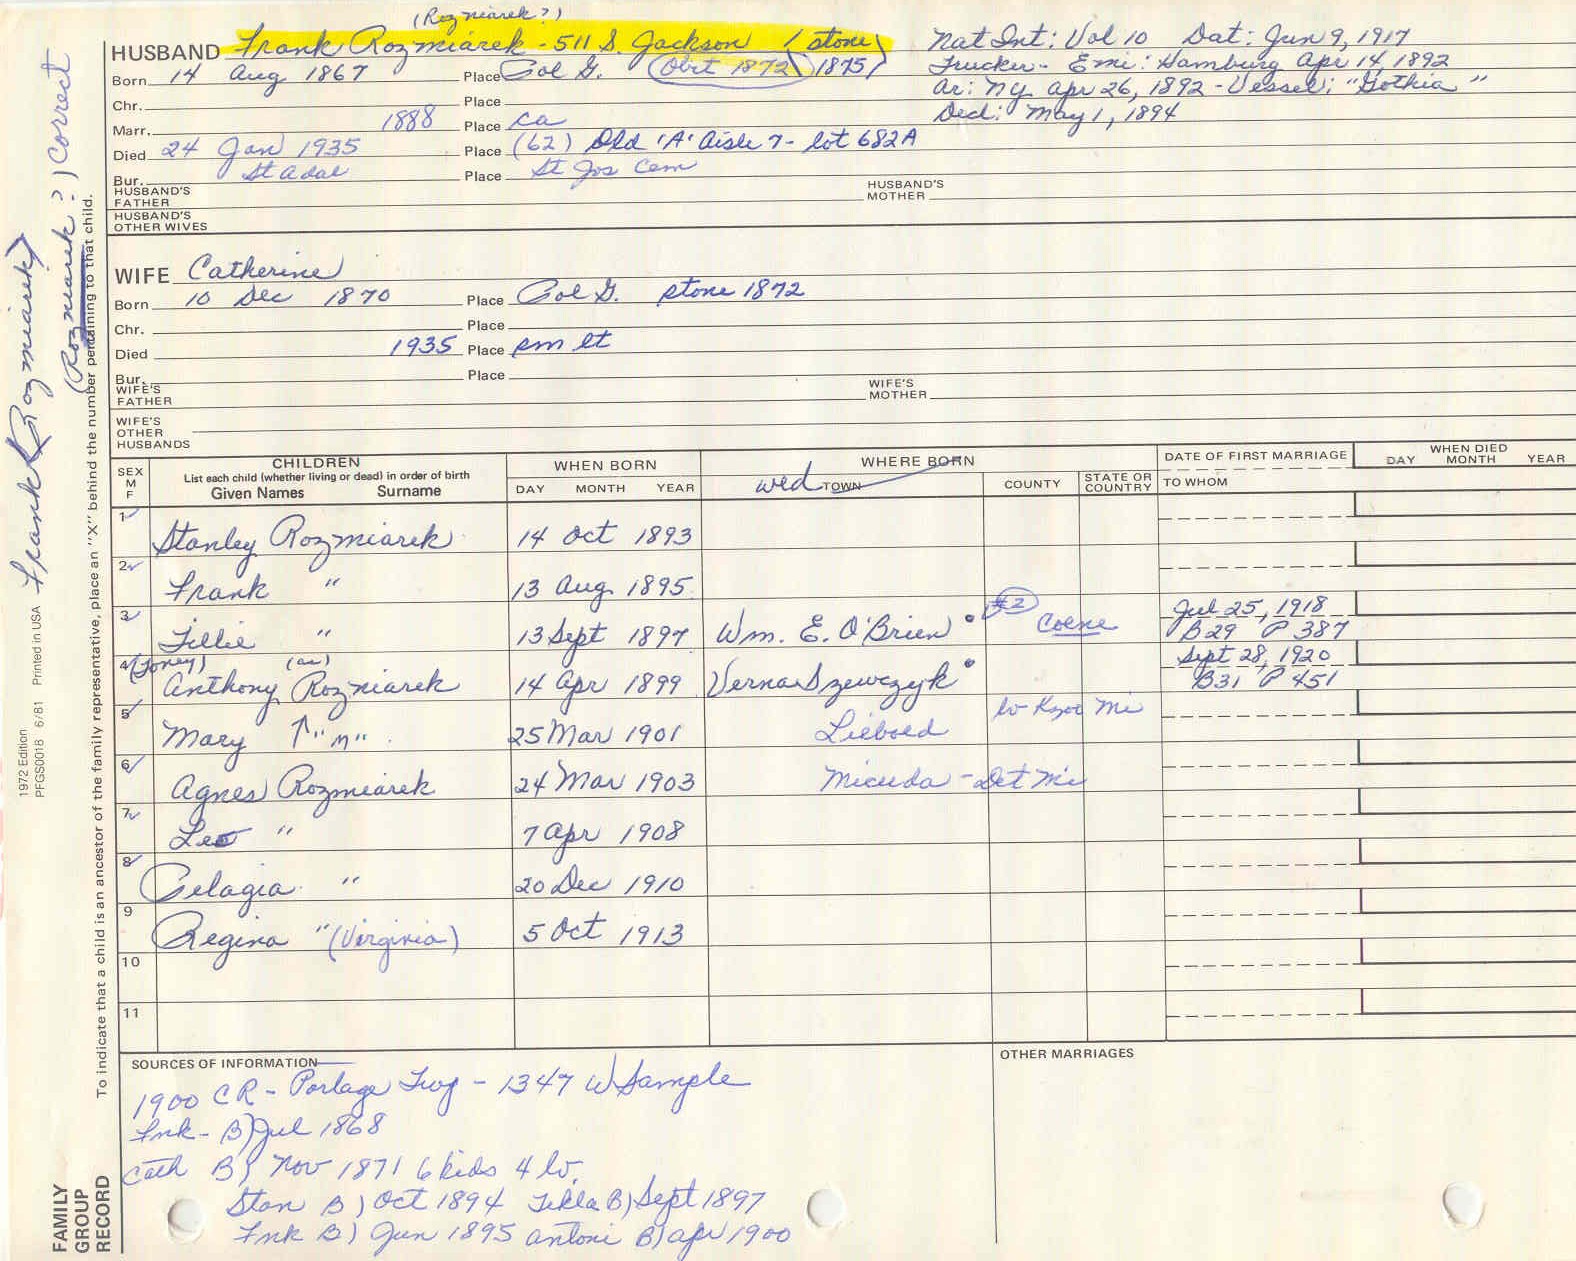 (Rozniarek?)
HUSBAND Frank Rozmiarek - 511 S. Jackson / stone
Nat Int: Vol 10 Dat: Jun 9, 1917
Born 14 Aug 1867 Place Pol G. (Obit 1872) 1875)
Trucker - Emi: Hamburg Apr 14, 1892
Chr. Place
Ar: Ny Apr 26, 1892 - Vessel: "Gothia"
Marr. 1888 Place ca
Decl: May 1, 1894
Died 24 Jan 1935 Place (62) Old 'A' Aisle 7 - lot 682A
Bur. St Adal Place St Jos Cem
HUSBAND'S FATHER HUSBAND'S MOTHER
HUSBAND'S OTHER WIVES
WIFE Catherine
Born 10 Dec 1870 Place Pol G. stone 1872
Chr. Place
Died 1935 Place pm lt
Bur. Place
WIFE'S FATHER WIFE'S MOTHER
WIFE'S OTHER HUSBANDS
SEX M F
CHILDREN
List each child (whether living or dead) in order of birth
Given Names Surname
WHEN BORN
DAY MONTH YEAR
WHERE BORN
wed TOWN COUNTY STATE OR COUNTRY
DATE OF FIRST MARRIAGE
TO WHOM
WHEN DIED
DAY MONTH YEAR
1 Stanley Rozmiarek 14 Oct 1893
2 Frank " 13 Aug 1895
3 Tillie " 13 Sept 1897 Wm. E. O'Brien #2 Jul 25, 1918
B29 P 387
4 (Toney) (ar) Anthony Rozniarek 14 Apr 1899 Verna Szewczyk Sept 28, 1920
B31 P 451
5 Mary ↑ "M" 25 Mar 1901 Liebold lv Kzoo Mi
6 Agnes Rozmiarek 24 Mar 1903 Micuda - Det Mi
7 Leo " 7 Apr 1908
8 Pelagia " 20 Dec 1910
9 Regina " (Virginia) 5 Oct 1913
10
11
SOURCES OF INFORMATION
1900 CR - Portage Twp - 1347 W Sample
Fnk - B) Jul 1868
Cath B) Nov 1871 6 kids 4 lv.
Stan B) Oct 1894 Tekla B) Sept 1897
Fnk B) Jun 1895 Antoni B) Apr 1900
OTHER MARRIAGES
FAMILY GROUP RECORD
To indicate that a child is an ancestor of the family representative, place an "X" behind the number pertaining to that child.
1972 Edition
PFGS0018 6/81 Printed in USA
Frank Rozmiarek)
(Rozniarek?) Correct